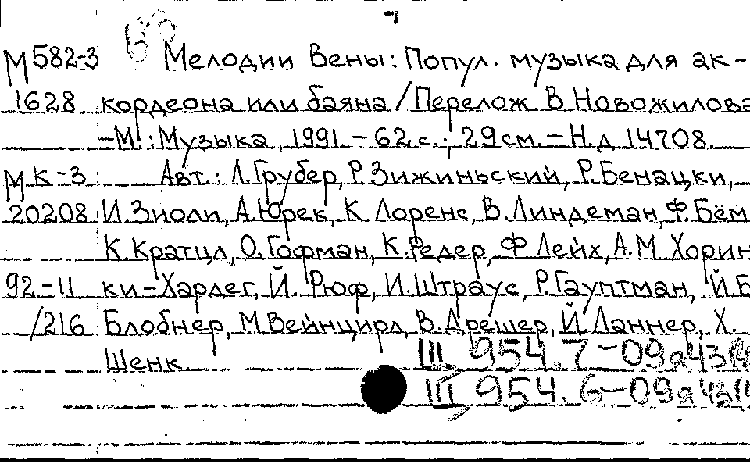 М582-3 Мелодии Вены: Попул. музыка для ак-
1628 кордеона или баяна / Перелож. В. Новожилова
-М.: Музыка, 1991. - 62 с.; 29 см. - Н.д. 14708.
МК-3 Авт.: Л. Грубер, Р. Зижиньский, Р. Бенацки,
20208 И. Зиоли, А. Юрек, К. Лоренс, В. Линдеман, Ф. Бём
К. Кратцл, О. Гофман, К. Редер, Ф. Лейх, А.М. Хорин
92-11 ки-Хардег, Й. Рюф, И. Штраус, Р. Гауптман, Й. Б
/216 Блобнер, М. Вейнцирл, В. Дрешер, Й. Ланнер, Х.
Шенк.
Щ 954.7-09я43
Щ 954.6-09я43